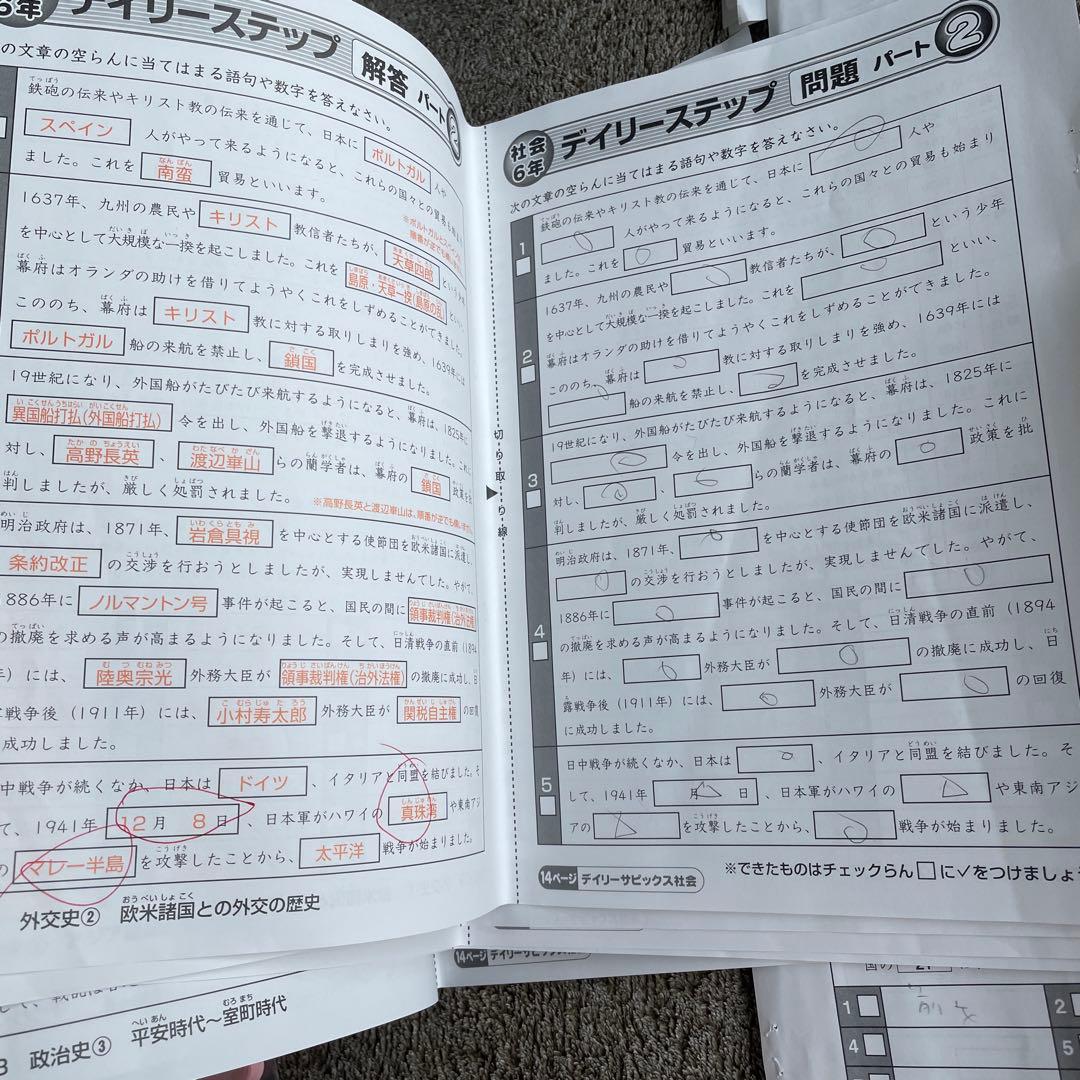 6年 デイリーステップ 解答 パート2
の文章の空らんに当てはまる語句や数字を答えなさい。
鉄砲の伝来やキリスト教の伝来を通じて、日本に ポルトガル 人や
スペイン 人がやって来るようになると、これらの国々との貿易も始まり
ました。これを 南蛮 貿易といいます。
※ポルトガルとスペインは、順番が逆でも構いません。
1637年、九州の農民や キリスト 教信者たちが、 天草四郎 という少年
を中心として大規模な一揆を起こしました。これを 島原・天草一揆(島原の乱) といい、
幕府はオランダの助けを借りてようやくこれをしずめることができました。
こののち、幕府は キリスト 教に対する取りしまりを強め、1639年には
ポルトガル 船の来航を禁止し、 鎖国 を完成させました。
19世紀になり、外国船がたびたび来航するようになると、幕府は、1825年に
異国船打払(外国船打払) 令を出し、外国船を撃退するようになりました。これに
対し、 高野長英 、 渡辺崋山 らの蘭学者は、幕府の 鎖国 政策を批
判しましたが、厳しく処罰されました。
※高野長英と渡辺崋山は、順番が逆でも構いません。
明治政府は、1871年、 岩倉具視 を中心とする使節団を欧米諸国に派遣し、
条約改正 の交渉を行おうとしましたが、実現しませんでした。やがて、
1886年に ノルマントン号 事件が起こると、国民の間に 領事裁判権(治外法権)
の撤廃を求める声が高まるようになりました。そして、日清戦争の直前(1894
年)には、 陸奥宗光 外務大臣が 領事裁判権(治外法権) の撤廃に成功し、日
露戦争後(1911年)には、 小村寿太郎 外務大臣が 関税自主権 の回復
に成功しました。
日中戦争が続くなか、日本は ドイツ 、イタリアと同盟を結びました。そ
して、1941年 12月 8日 、日本軍がハワイの 真珠湾 や東南アジ
アの マレー半島 を攻撃したことから、 太平洋 戦争が始まりました。
外交史② 欧米諸国との外交の歴史
切り取り線
社会6年 デイリーステップ 問題 パート2
次の文章の空らんに当てはまる語句や数字を答えなさい。
1
鉄砲の伝来やキリスト教の伝来を通じて、日本に 人や
人がやって来るようになると、これらの国々との貿易も始まり
ました。これを 貿易といいます。
2
1637年、九州の農民や 教信者たちが、 という少年
を中心として大規模な一揆を起こしました。これを
幕府はオランダの助けを借りてようやくこれをしずめることができました。
こののち、幕府は 教に対する取りしまりを強め、1639年には
船の来航を禁止し、 を完成させました。
3
19世紀になり、外国船がたびたび来航するようになると、幕府は、1825年に
令を出し、外国船を撃退するようになりました。これに
対し、 、 らの蘭学者は、幕府の 政策を批
判しましたが、厳しく処罰されました。
4
明治政府は、1871年、 を中心とする使節団を欧米諸国に派遣し、
の交渉を行おうとしましたが、実現しませんでした。やがて、
1886年に 事件が起こると、国民の間に
の撤廃を求める声が高まるようになりました。そして、日清戦争の直前(1894
年)には、 外務大臣が の撤廃に成功し、日
露戦争後(1911年)には、 外務大臣が の回復
に成功しました。
5
日中戦争が続くなか、日本は 、イタリアと同盟を結びました。そ
して、1941年 月 日 、日本軍がハワイの や東南アジ
アの を攻撃したことから、 戦争が始まりました。
※できたものはチェックらん□に✓をつけましょ
14ページ デイリーサピックス社会
14ページ デイリーサピックス社
3 政治史③ 平安時代~室町時代
国の
1
2
4
5